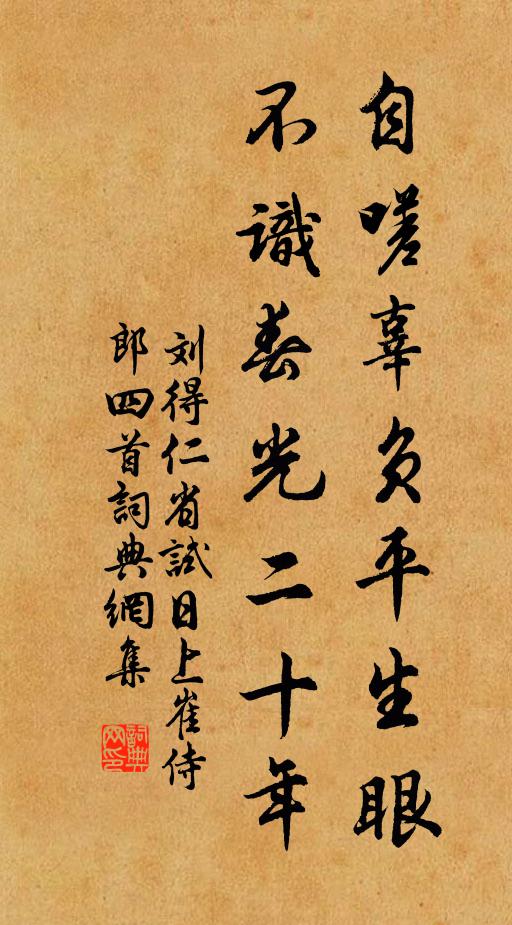 自嗟辜负平生眼
不識春光二十年
刘得仁省試日上崔侍
郎四首詞典網集
詞典网印